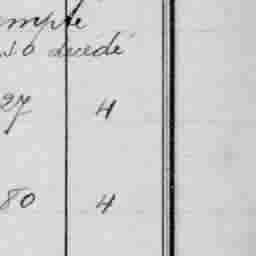 empte
so décédé
27 4
80 4